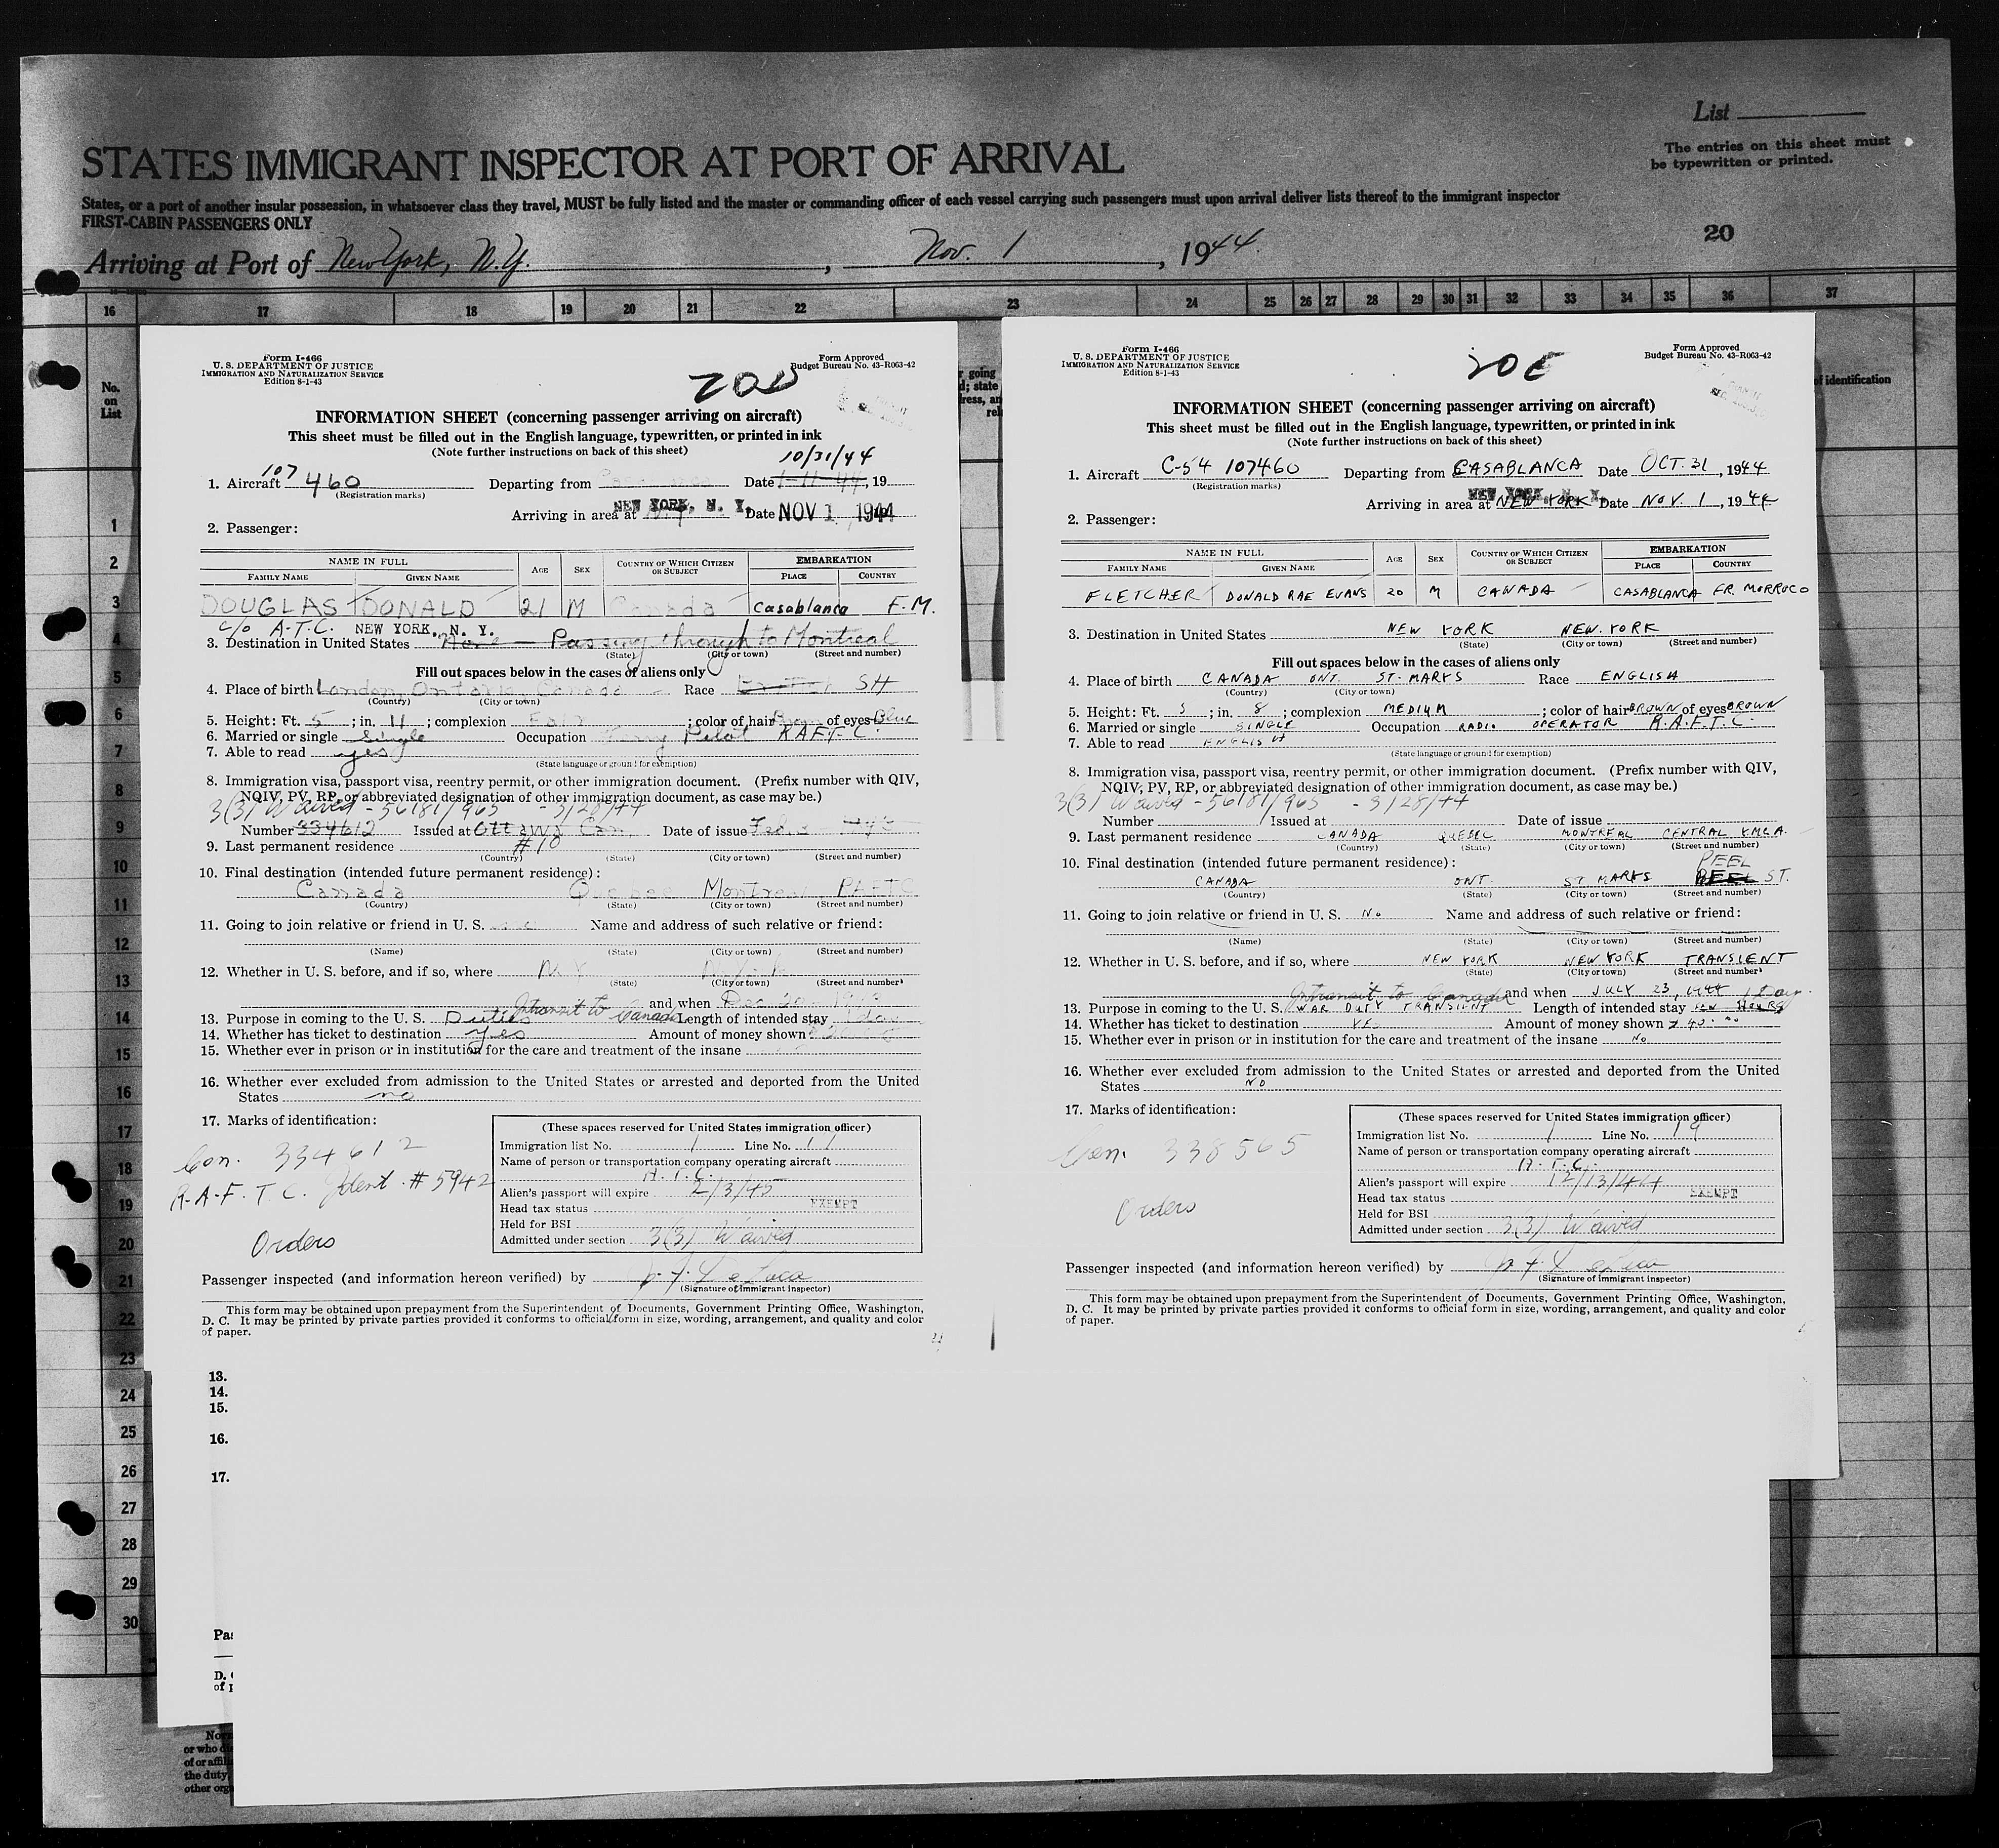 List
The entries on this sheet must
be typewritten or printed.
STATES IMMIGRANT INSPECTOR AT PORT OF ARRIVAL
States, or a port of another insular possession, in whatsoever class they travel, MUST be fully listed and the master or commanding officer of each vessel carrying such passengers must upon arrival deliver lists thereof to the immigrant inspector
FIRST-CABIN PASSENGERS ONLY
20
Arriving at Port of New York, N.Y. , Nov. 1 , 1944.
16 17 18 19 20 21 22 23 24 25 26 27 28 29 30 31 32 33 34 35 36 37
No.
on
List
1
2
3
4
5
6
7
8
9
10
11
12
13
14
15
16
17
18
19
20
21
22
23
24
25
26
27
28
29
30
Form I-466
U. S. DEPARTMENT OF JUSTICE
IMMIGRATION AND NATURALIZATION SERVICE
Edition 8-1-43
Form Approved
Budget Bureau No. 43-R063-42
20D
INFORMATION SHEET (concerning passenger arriving on aircraft)
This sheet must be filled out in the English language, typewritten, or printed in ink
(Note further instructions on back of this sheet)
10/31/44
1. Aircraft 107460 Departing from Date 1-11-44, 19
(Registration marks)
Arriving in area at NEW YORK, N. Y. Date NOV 1 1944
2. Passenger:
NAME IN FULL AGE SEX COUNTRY OF WHICH CITIZEN OR SUBJECT EMBARKATION
FAMILY NAME GIVEN NAME PLACE COUNTRY
DOUGLAS DONALD 21 M Canada Casablanca F.M.
c/o A.T.C. NEW YORK, N. Y.
3. Destination in United States None — Passing through to Montreal
(State) (City or town) (Street and number)
Fill out spaces below in the cases of aliens only
4. Place of birth London, Ontario, Canada Race British SH
(Country) (City or town)
5. Height: Ft. 5 ; in. 11 ; complexion Fair ; color of hair Brown of eyes Blue
6. Married or single Single Occupation Ferry Pilot RAFTC
7. Able to read yes
(State language or ground for exemption)
8. Immigration visa, passport visa, reentry permit, or other immigration document. (Prefix number with QIV,
NQIV, PV, RP, or abbreviated designation of other immigration document, as case may be.)
3(3) Waived - 56181/965 3/28/44
Number 334612 Issued at Ottawa Can. Date of issue Feb. 3
9. Last permanent residence #10
(Country) (State) (City or town) (Street and number)
10. Final destination (intended future permanent residence):
Canada Quebec Montreal RAFTC
(Country) (State) (City or town) (Street and number)
11. Going to join relative or friend in U. S. Name and address of such relative or friend:
(Name) (State) (City or town) (Street and number)
12. Whether in U. S. before, and if so, where N.Y.
(State) (City or town) (Street and number)
and when Dec
13. Purpose in coming to the U. S. Duties Intransit to Canada Length of intended stay 1 day
14. Whether has ticket to destination Yes Amount of money shown
15. Whether ever in prison or in institution for the care and treatment of the insane
16. Whether ever excluded from admission to the United States or arrested and deported from the United
States no
17. Marks of identification:
Can. 334612
R.A.F.T.C. Ident. #5942
Orders
(These spaces reserved for United States immigration officer)
Immigration list No. 1 Line No. 11
Name of person or transportation company operating aircraft
A.T.C.
Alien's passport will expire 2/3/45
Head tax status EXEMPT
Held for BSI
Admitted under section 3(3) Waived
Passenger inspected (and information hereon verified) by
(Signature of immigrant inspector)
This form may be obtained upon prepayment from the Superintendent of Documents, Government Printing Office, Washington,
D. C. It may be printed by private parties provided it conforms to official form in size, wording, arrangement, and quality and color
of paper.
13.
14.
15.
16.
17.
Form I-466
U. S. DEPARTMENT OF JUSTICE
IMMIGRATION AND NATURALIZATION SERVICE
Edition 8-1-43
Form Approved
Budget Bureau No. 43-R063-42
20E
INFORMATION SHEET (concerning passenger arriving on aircraft)
This sheet must be filled out in the English language, typewritten, or printed in ink
(Note further instructions on back of this sheet)
1. Aircraft C-54 107460 Departing from CASABLANCA Date OCT. 31, 1944
(Registration marks)
Arriving in area at NEW YORK Date NOV. 1, 1944
2. Passenger:
NAME IN FULL AGE SEX COUNTRY OF WHICH CITIZEN OR SUBJECT EMBARKATION
FAMILY NAME GIVEN NAME PLACE COUNTRY
FLETCHER DONALD RAE EVANS 20 M CANADA CASABLANCA FR. MORROCO
3. Destination in United States NEW YORK NEW YORK
(State) (City or town) (Street and number)
Fill out spaces below in the cases of aliens only
4. Place of birth CANADA ONT. ST. MARYS Race ENGLISH
(Country) (City or town)
5. Height: Ft. 5 ; in. 8 ; complexion MEDIUM ; color of hair BROWN of eyes BROWN
6. Married or single SINGLE Occupation RADIO OPERATOR R.A.F.T.C.
7. Able to read ENGLISH
(State language or ground for exemption)
8. Immigration visa, passport visa, reentry permit, or other immigration document. (Prefix number with QIV,
NQIV, PV, RP, or abbreviated designation of other immigration document, as case may be.)
3(3) Waived - 56181/965 - 3/28/44
Number Issued at Date of issue
9. Last permanent residence CANADA QUEBEC MONTREAL CENTRAL Y.M.C.A.
(Country) (State) (City or town) (Street and number)
10. Final destination (intended future permanent residence): PEEL
CANADA ONT. ST MARYS PEEL ST.
(Country) (State) (City or town) (Street and number)
11. Going to join relative or friend in U. S. No Name and address of such relative or friend:
(Name) (State) (City or town) (Street and number)
12. Whether in U. S. before, and if so, where NEW YORK NEW YORK TRANSIENT
(State) (City or town) (Street and number)
Intransit to Canada and when JULY 23, 1944 1 Day.
13. Purpose in coming to the U. S. WAR DUTY TRANSIENT Length of intended stay FEW HOURS
14. Whether has ticket to destination YES Amount of money shown 40.
15. Whether ever in prison or in institution for the care and treatment of the insane No
16. Whether ever excluded from admission to the United States or arrested and deported from the United
States NO
17. Marks of identification:
Can. 338565
Orders
(These spaces reserved for United States immigration officer)
Immigration list No. 1 Line No. 19
Name of person or transportation company operating aircraft
A.T.C.
Alien's passport will expire 12/13/44
Head tax status EXEMPT
Held for BSI
Admitted under section 3(3) Waived
Passenger inspected (and information hereon verified) by
(Signature of immigrant inspector)
This form may be obtained upon prepayment from the Superintendent of Documents, Government Printing Office, Washington,
D. C. It may be printed by private parties provided it conforms to official form in size, wording, arrangement, and quality and color
of paper.
of identification